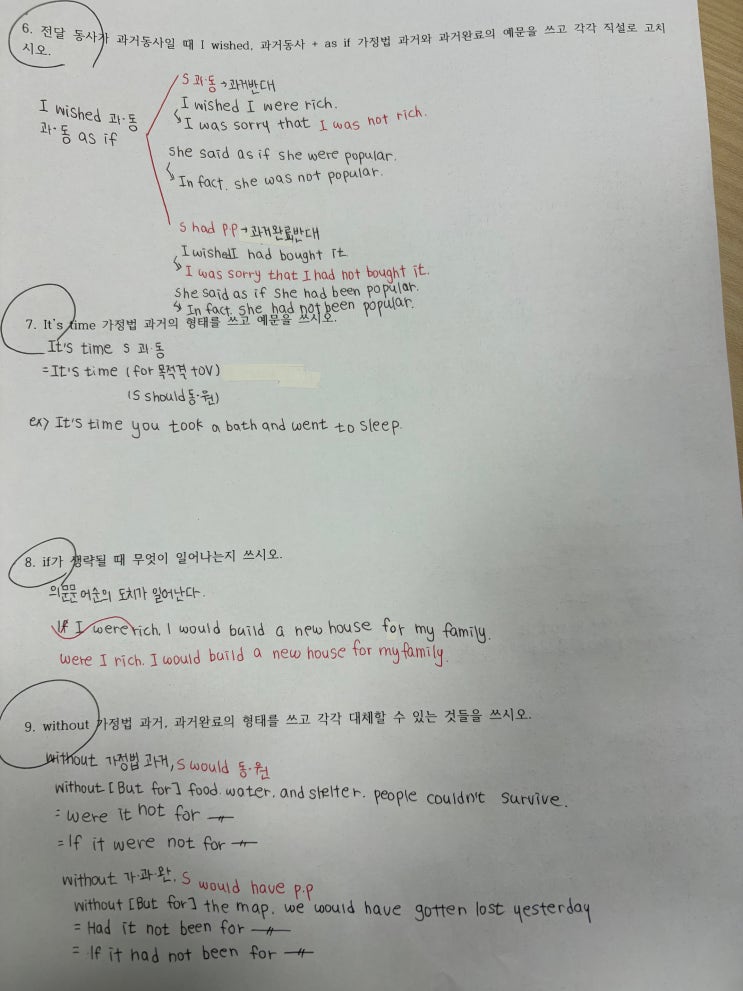 6. 전달 동사가 과거동사일 때 I wished, 과거동사 + as if 가정법 과거와 과거완료의 예문을 쓰고 각각 직설로 고치
시오.
S 과·동 → 과거반대
I wished 과·동
과·동 as if
I wished I were rich.
I was sorry that I was not rich.
she said as if she were popular.
In fact. she was not popular.
S had p.p → 과거완료반대
I wished I had bought it
I was sorry that I had not bought it.
she said as if she had been popular.
In fact. she had not been popular.
7. It's time 가정법 과거의 형태를 쓰고 예문을 쓰시오.
It's time S 과·동
= It's time (for 목적격 to V)
(S should 동·원)
ex) It's time you took a bath and went to sleep.
8. if가 생략될 때 무엇이 일어나는지 쓰시오.
의문문 어순의 도치가 일어난다.
If I were rich, I would build a new house for my family.
were I rich. I would build a new house for my family.
9. without 가정법 과거, 과거완료의 형태를 쓰고 각각 대체할 수 있는 것들을 쓰시오.
without 가정법 과거, S would 동·원
without [But for] food. water. and shelter. people couldn't survive.
= were it not for
= If it were not for
without 가·과·완. S would have p.p
without [But for] the map. we would have gotten lost yesterday
= Had it not been for
= If it had not been for